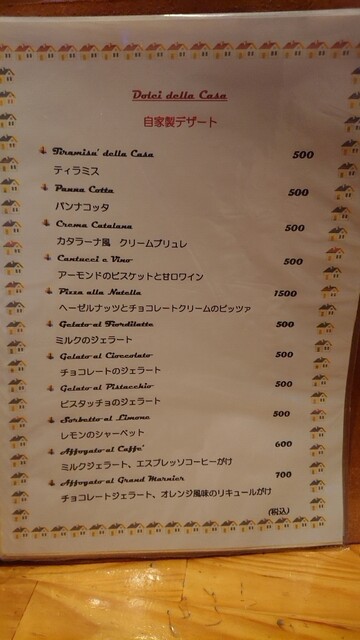 Dolci della Casa
自家製デザート
Tiramisu' della Casa 500
ティラミス
Panna Cotta 500
パンナコッタ
Crema Catalana 500
カタラーナ風 クリームブリュレ
Cantucci e Vino 500
アーモンドのビスケットと甘口ワイン
Pizza alla Nutella 1500
ヘーゼルナッツとチョコレートクリームのピッツァ
Gelato al Fiordilatte 500
ミルクのジェラート
Gelato al Cioccolato 500
チョコレートのジェラート
Gelato al Pistacchio 500
ピスタッチョのジェラート
Sorbetto al Limone 500
レモンのシャーベット
Affogato al Caffe' 600
ミルクジェラート、エスプレッソコーヒーがけ
Affogato al Grand Marnier 700
チョコレートジェラート、オレンジ風味のリキュールがけ
(税込)